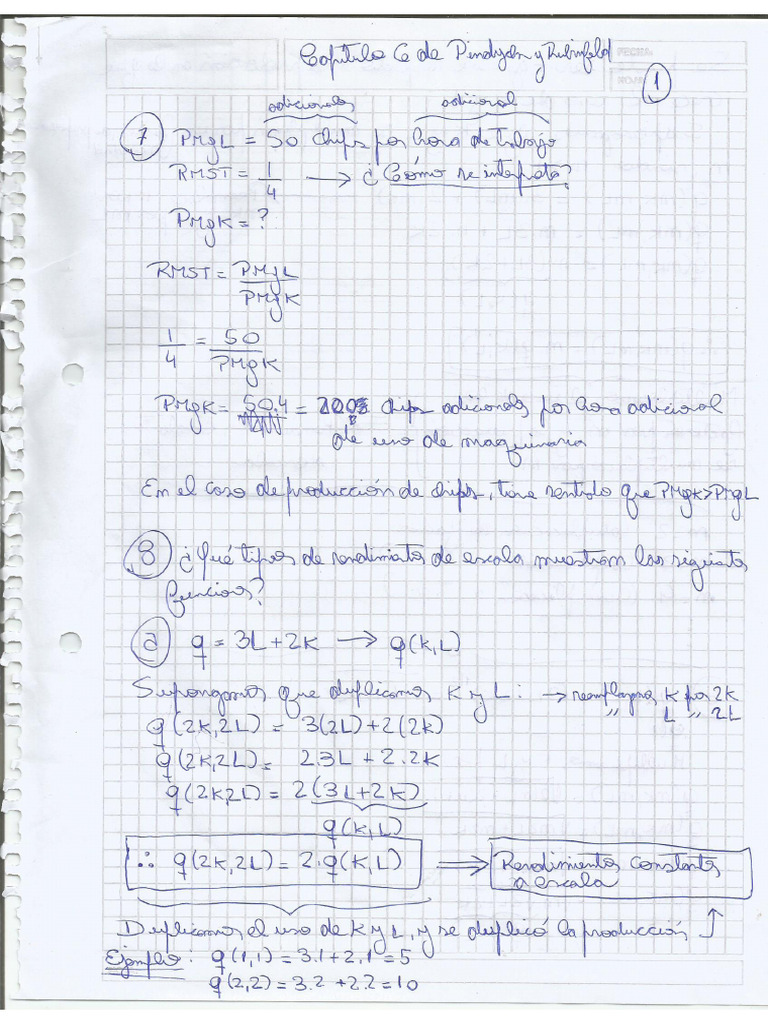 Capítulo 6 de Pindyck y Rubinfeld
FECHA:
HOJA
1
adicionales adicional
7 PMgL = 50 chips por hora de trabajo
RMST = 1/4 → ¿Cómo se interpreta?
PMgK = ?
RMST = PMgL/PMgK
1/4 = 50/PMgK
PMgK = 50.4 = 200 chips adicionales por hora adicional
de uso de maquinaria
En el caso de producción de chips, tiene sentido que PMgK>PMgL
8 ¿Qué tipos de rendimientos de escala muestran las siguientes
funciones?
a q = 3L+2K → q(K,L)
Supongamos que duplicamos K y L: → reemplazamos K por 2K
" L " 2L
q(2K,2L) = 3(2L)+2(2K)
q(2K,2L) = 2.3L + 2.2K
q(2K,2L) = 2(3L+2K)
q(K,L)
∴ q(2K,2L) = 2.q(K,L) ⟹ Rendimientos constantes
a escala
Duplicamos el uso de K y L, y se duplicó la producción
Ejemplo: q(1,1) = 3.1+2.1 = 5
q(2,2) = 3.2 + 2.2 = 10